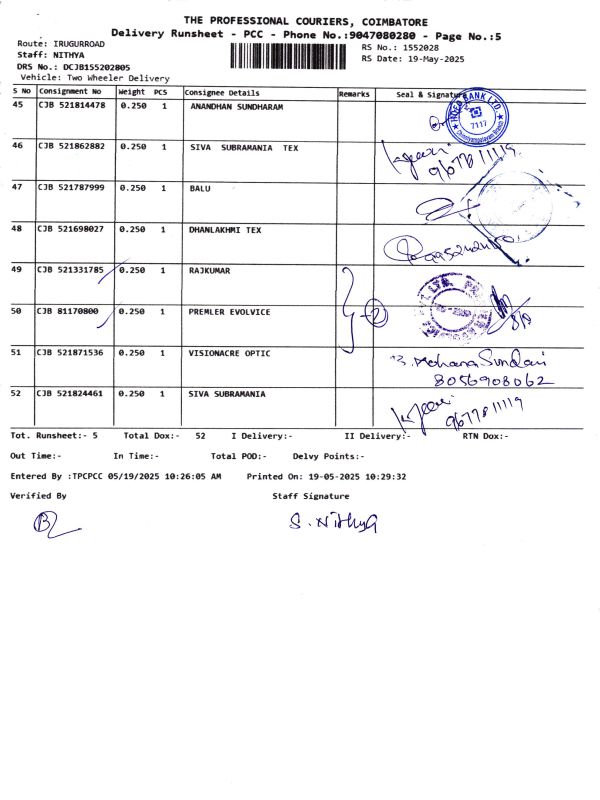 THE PROFESSIONAL COURIERS, COIMBATORE
Delivery Runsheet - PCC - Phone No.:9047080280 - Page No.:5
Route: IRUGURROAD
RS No.: 1552028
Staff: NITHYA
RS Date: 19-May-2025
DRS No.: DCJB155202805
Vehicle: Two Wheeler Delivery
S No Consignment No Weight PCS Consignee Details Remarks Seal & Signature
45 CJB 521814478 0.250 1 ANANDHAN SUNDHARAM
BANK LTD.
7117
46 CJB 521862882 0.250 1 SIVA SUBRAMANIA TEX
9677811119
47 CJB 521787999 0.250 1 BALU
48 CJB 521698027 0.250 1 DHANLAKHMI TEX
49 CJB 521331785 0.250 1 RAJKUMAR
50 CJB 81170800 0.250 1 PREMLER EVOLVICE
2
51 CJB 521871536 0.250 1 VISIONACRE OPTIC
Mohana Sundari
8056908062
52 CJB 521824461 0.250 1 SIVA SUBRAMANIA
9677811119
Tot. Runsheet:- 5 Total Dox:- 52 I Delivery:- II Delivery:- RTN Dox:-
Out Time:- In Time:- Total POD:- Delvy Points:-
Entered By :TPCPCC 05/19/2025 10:26:05 AM Printed On: 19-05-2025 10:29:32
Verified By Staff Signature
S. Nithya